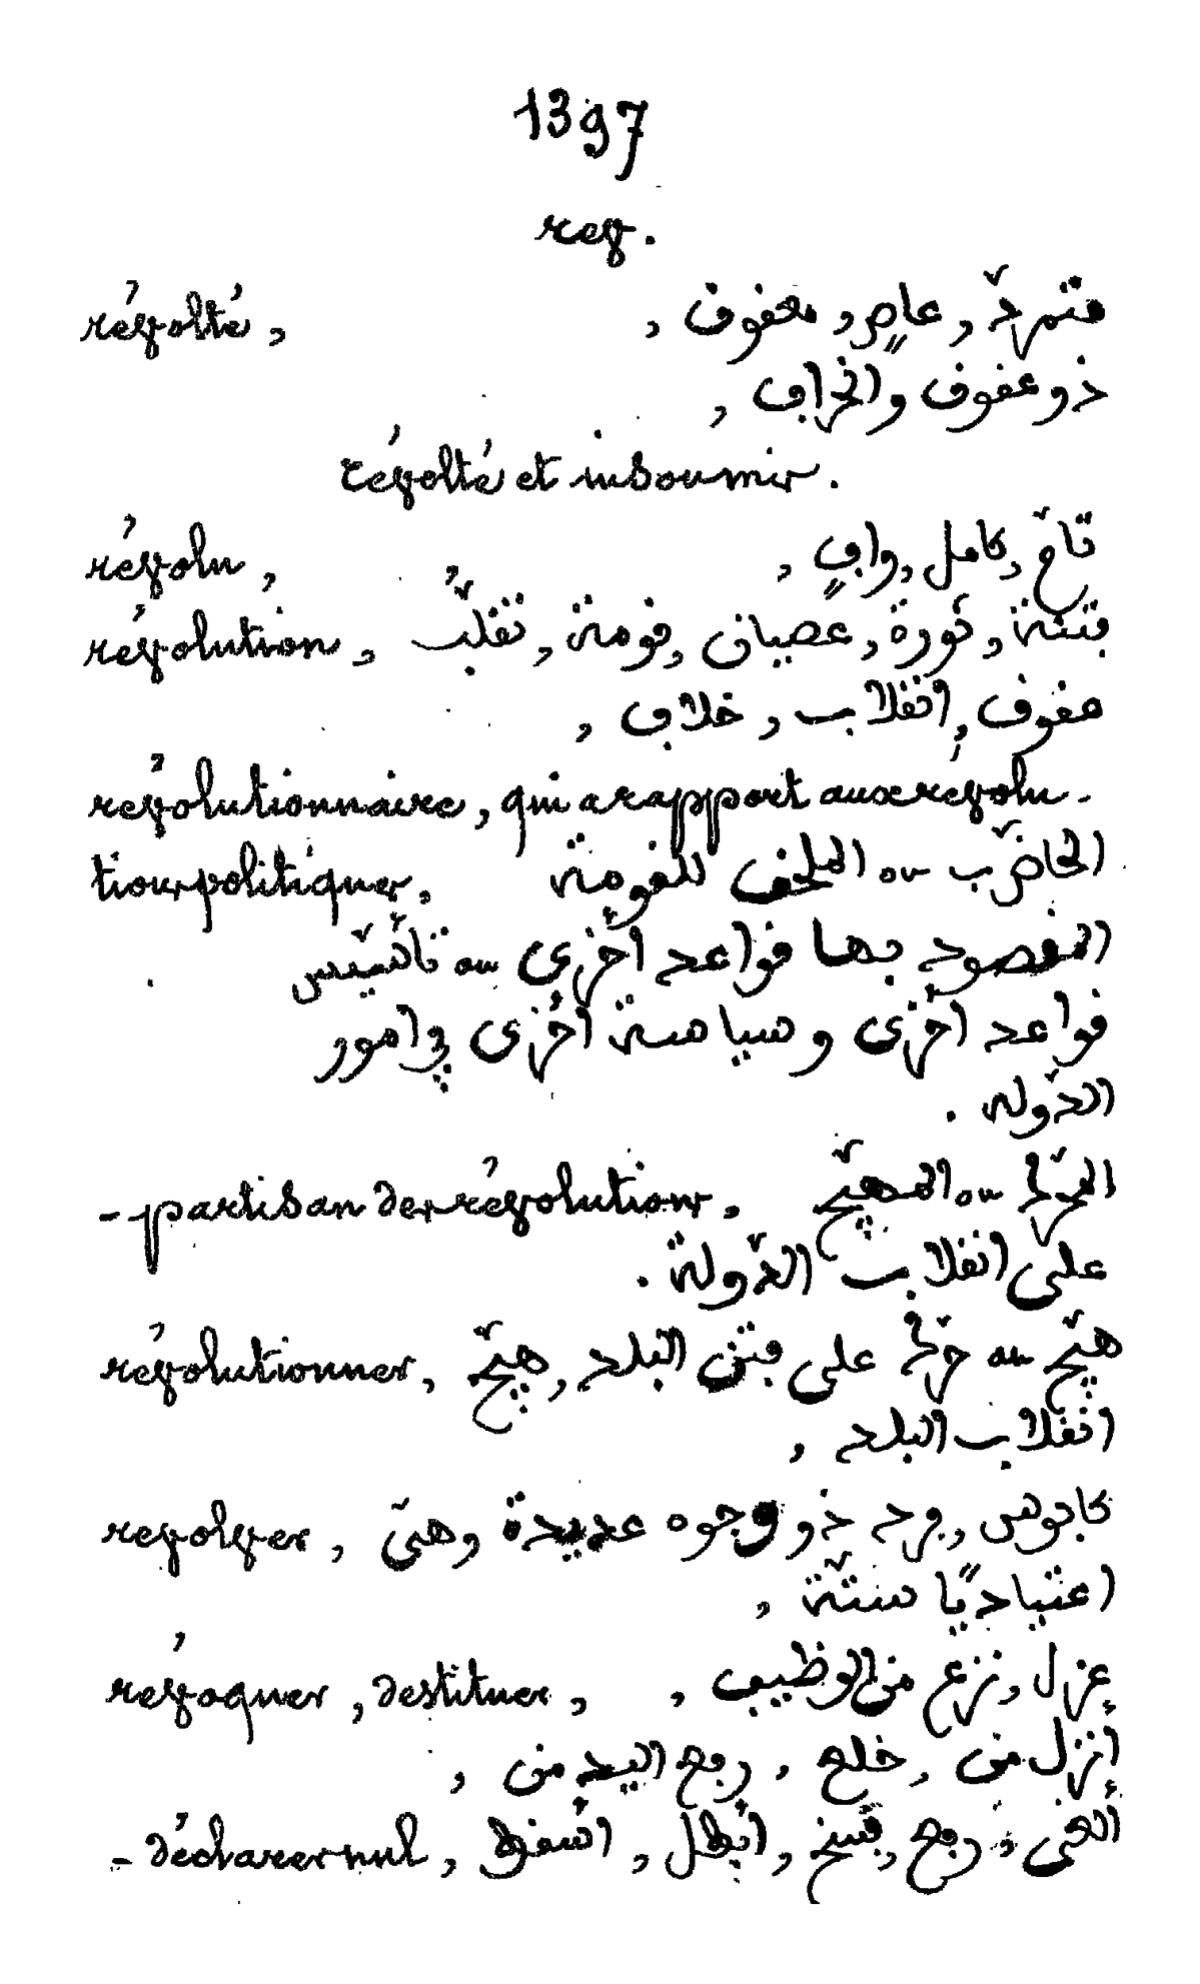 1397
rev.
révolté, متمرّد, عاصٍ, معقوق,
ذو عقوق وانحراف,
révolté et insoumis.
révolu, تامّ, كامل, وافٍ,
révolution, فتنة, ثورة, عصيان, قومة, تقلّب,
عقوق, انقلاب, خلاف,
révolutionnaire, qui a rapport aux révolu-
tions politiques, ou للقومة
المقصود بها قواعد أخرى ou تأسيس
قواعد أخرى وسياسة أخرى في امور
الدّولة.
- partisan des révolutions, المحرّك ou المهيّج
على انقلاب الدّولة.
révolutionner, هيّج ou حرّك على فتن البلد, هيّج
انقلاب البلد,
revolver, كابوس, فرد ذو وجوه عديدة وهي
اعتياديًّا ستّة,
révoquer, destituer, عزل, نزع من الوظيف,
أنزل من, خلع, رفع اليد من,
- déclarer nul, ألغى, رفع, فسخ, أبطل, أسقط